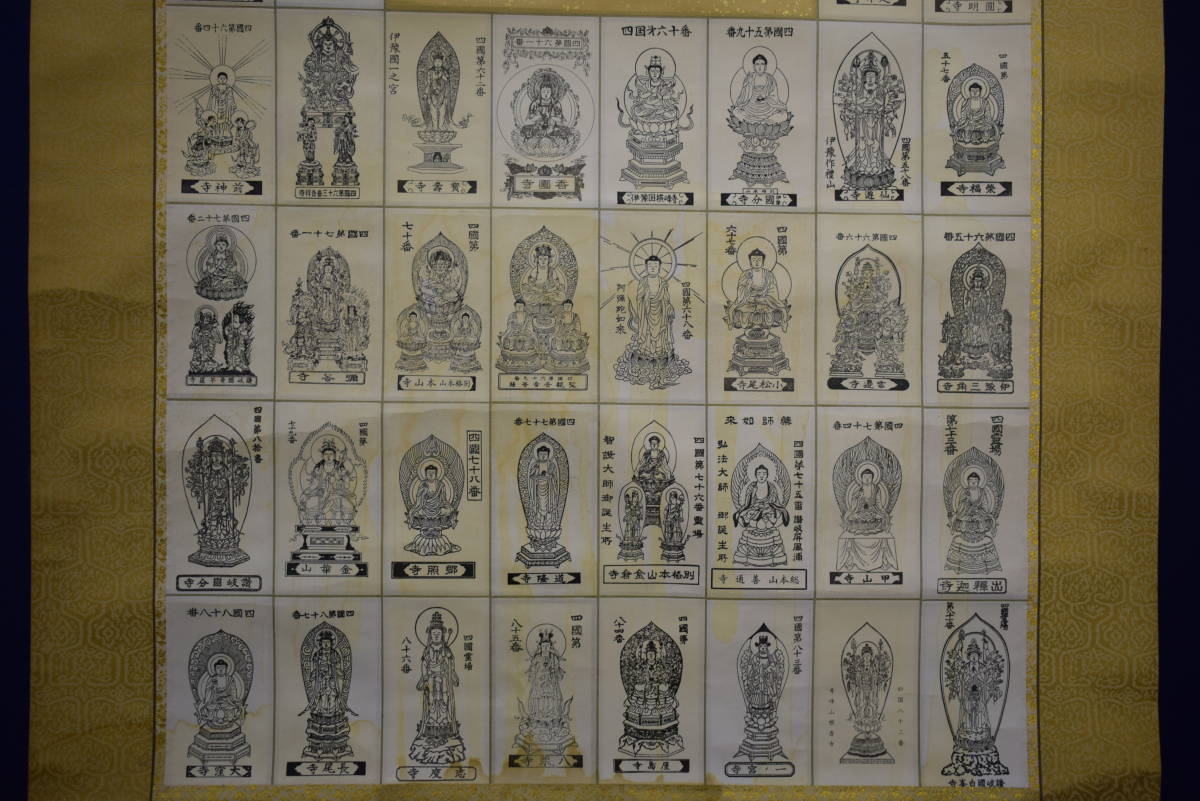 圓明寺
四國第
五十七番
榮福寺
四國第五十八番
伊豫作禮山
仙遊寺
四國第五十九番
國分寺
四国才六十番
伊豫国横峰寺
四國第六十一番
香園寺
四國第六十二番
伊豫國一之宮
寶壽寺
四國第六十三番吉祥寺
四國第六十四番
前神寺
四國第六十五番
伊豫三角寺
四國第六十六番
雲邊寺
四國第
六十七番
小松尾寺
四國第六八番
阿彌陀如來
四國第六十九番
聖觀世音菩薩
四國第
七十番
別格本山本山寺
四國第七十一番
彌谷寺
四国第七十二番
讃岐國曼荼羅寺
四國霊場
第七十三番
出釋迦寺
四国第七十四番
甲山寺
藥師如来
四國第七十五番 讃岐屏風浦
弘法大師 御誕生所
総本山 善通寺
四國第七十六番靈場
智證大師御誕生所
別格本山金倉寺
四国第七十七番
道隆寺
四國七十八番
郷照寺
四國第
七十九番
金華山
四国第八拾番
讃岐國分寺
四國霊場
第八十一番
讃岐國白峯寺
四国八十二番
青峰山根香寺
四國第八十三番
一宮寺
四國第
八十四番
屋島寺
四國第
八十五番
八栗寺
四國霊場
八十六番
志度寺
四国第八十七番
長尾寺
四國八十八番
大窪寺